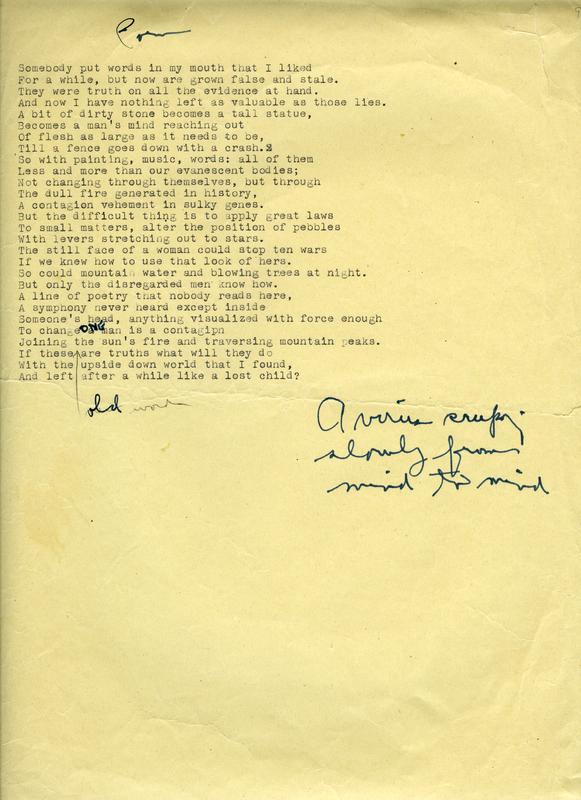 Poem
Somebody put words in my mouth that I liked
For a while, but now are grown false and stale.
They were truth on all the evidence at hand.
And now I have nothing left as valuable as those lies.
A bit of dirty stone becomes a tall statue,
Becomes a man's mind reaching out
Of flesh as large as it needs to be,
Till a fence goes down with a crash.
So with painting, music, words: all of them
Less and more than our evanescent bodies;
Not changing through themselves, but through
The dull fire generated in history,
A contagion vehement in sulky genes.
But the difficult thing is to apply great laws
To small matters, alter the position of pebbles
With levers stretching out to stars.
The still face of a woman could stop ten wars
If we knew how to use that look of hers.
So could mountain water and blowing trees at night.
But only the disregarded men know how.
A line of poetry that nobody reads here,
A symphony never heard except inside
Someone's head, anything visualized with force enough
To change ONE man is a contagipn
Joining the sun's fire and traversing mountain peaks.
If these are truths what will they do
With the upside down world that I found,
And left after a while like a lost child?
old word
A virus
slowly from
mind to mind